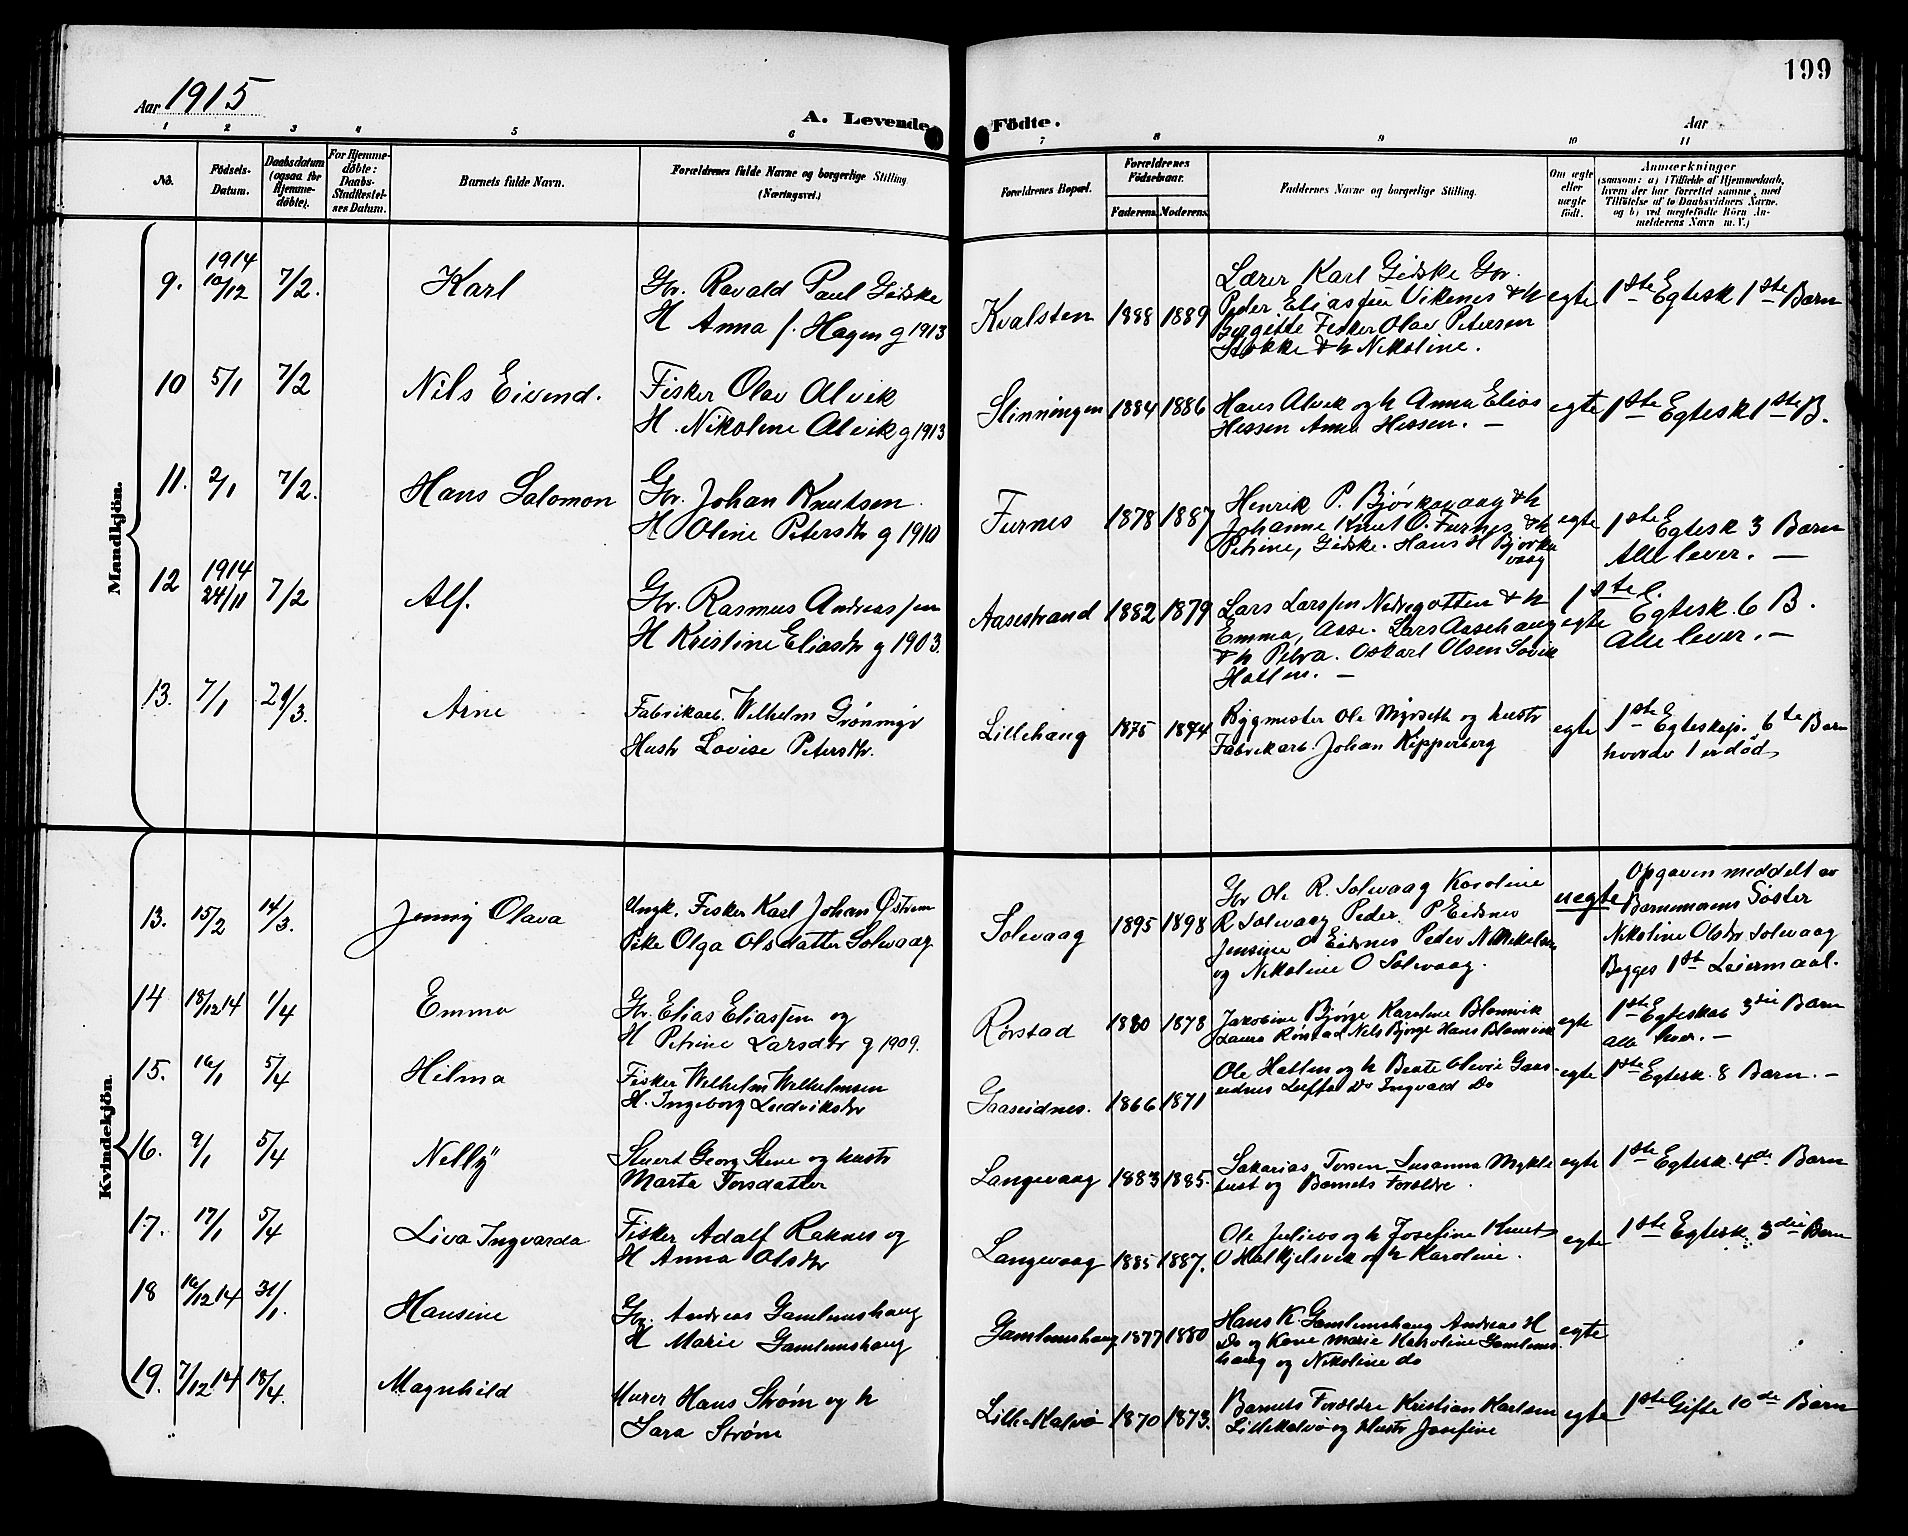 199
Aar 1915
A. Levende Födte.
Aar
1 2 3 4 5 6 7 8 9 10 11
No.
Födsels-Datum.
Daabsdatum (ogsaa for Hjemme-döbte).
For Hjemme-döbte: Daabs-Stadfestel-ses Datum.
Barnets fulde Navn.
Forældrenes fulde Navne og borgerlige Stilling (Næringsvei.)
Forældrenes Bopæl.
Forældrenes Födselsaar.
Faderens. Moderens.
Faddernes Navne og borgerlige Stilling.
Om ægte eller uægte födt.
Anmærkninger
(saasom: a) i Tilfælde af Hjemmedaab, hvem der har forrettet samme, med Tilföielse af to Daabsvidners Navne. og b) ved uægtefödte Börn An-melderens Navn m. V.)
Mandkjön.
9. 1914 10/12 7/2. Karl
Gbr. Ravald Paul Gidske
H Anna f. Hagen g 1913
Kvalsten 1888 1889
Lærer Karl Gidske Gbr.
Peder Eliassen Vikenes & h
Bergitte Fisker Olav Petersen
Stokke & h Nikoline.
egte 1ste Egtesk 1ste Barn
10 5/1 7/2 Nils Eivind.
Fisker Olav Alvik
H. Nikoline Alvik g 1913
Slinningen 1884 1886
Hans Alvik og h Anna Elias
Hessen Anna Hessen. —
egte 1ste Egtesk 1ste B.
11. 2/1 7/2. Hans Salomon
Gbr. Johan Knutsen
H Oline Petersdtr g 1910
Furnes 1878 1887
Henrik P. Bjørkavaag & h
Johanne Knut O. Furnes & h
Petrine, Gidske. Hans H Bjørka
vaag
egte 1ste Egtesk 3 Barn
Alle lever. —
12 1914 24/11 7/2 Alf.
Gbr. Rasmus Andreassen
H Kristine Eliasdtr g 1903.
Aasestrand 1882 1879
Lars Larssen Nedregotten & h
Emma, Aase. Lars Aasehaug
& h Petra. Oskarl Olsen Søvik
Hatlen. —
egte 1ste Egtesk. 6 B.
Alle lever. —
13. 7/1 29/3. Arne
Fabrikarb. Wilhelm Grønmyr
Hustr Lovise Petersdtr.
Lillehaug 1875 1874
Bygmester Ole Myrseth og hustr
Fabrikarb. Johan Kipperberg
egte 1ste Egteskap. 6te Barn
hvorav 1 er død,
Kvindekjön.
13. 15/2 14/3. Jenny Olava
Ungk. Fisker Karl Johan Østrem
Pike Olga Olsdatter Solevaag.
Solevaag 1895 1898
Gbr Ole R. Solevaag Karoline
R Solevaag Peder P Eidsnes
Jensine O Eidsnes Peder N Mikelsen
og Nikoline O Solevaag.
uegte Opgaven meddelt av
Barnemorens Søster
Nikoline Olsdtr Solevaag
Begges 1st Leiermaal.
14 18/12 14 1/4 Emma
Gbr. Elias Eliassen og
H Petrine Larsdtr g 1909.
Rørstad 1880 1878
Jakobine Bjørge Karoline Blomvik
Laura Rørstad Nils Bjørge Hans Blomvik
egte 1ste Egteskab 3die Barn
alle lever. —
15. 16/1 5/4 Hilma
Fisker Wilhelm Wilhelmsen
H. Ingeborg Ludviksdtr
Gaaseidnes. 1866 1871
Ole Hatlen og h Beate Olivie Gaas-
eidnes Do Ingvald Do
egte 1ste Egtesk. 8 Barn. —
16. 9/1 5/4 Nelly
Stuert Georg Stene og hustr
Marta Torsdatter
Langevaag 1883 1885.
Sakarias Torsen Susanna Mykle
bust og Barnets Foreldre.
egte 1ste Egtesk. 4de Barn
17. 17/1 5/4 Liva Ingvarda
Fisker Adalf Raknes og
H Anna Olsdtr
Langevaag 1885 1887.
Ole Julius og h Josefine Knut
O Molkjelsvik og h Karoline.
egte 1ste Egtesk. 3die Barn
18 16/12 14 31/1. Hansine
Gbr. Andreas Gamlemshaug
H Marie Gamlemshaug
Gamlemshaug 1877 1880
Hans K. Gamlemshaug Andreas H
Do og Kone Marie Karoline Gamlems
haug og Nikoline do
egte
19. 7/12 14 18/4. Magnhild
Murer Hans Strøm og h
Sara Strøm
Lille-Kalvø 1870 1873.
Barnets Foreldre Kristian Karlsen
Lillekalvø og Hustr Josefine
egte 1ste Gifte 10de Barn